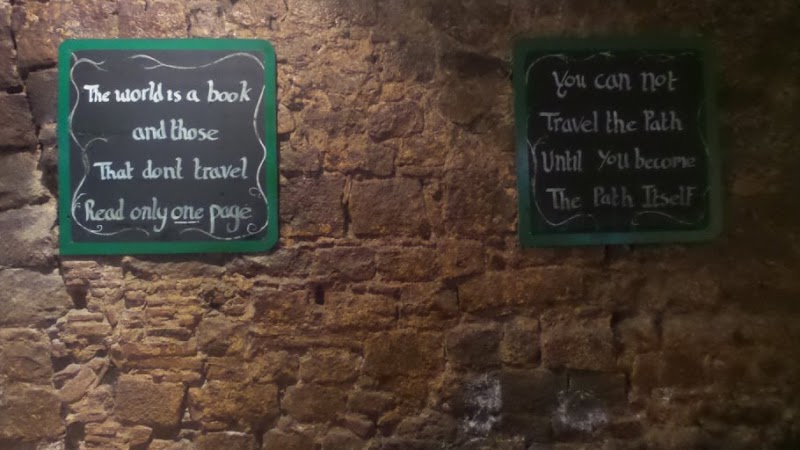 The world is a book
and those
That dont travel
Read only one page
You can not
Travel the Path
Until You become
The Path Itself